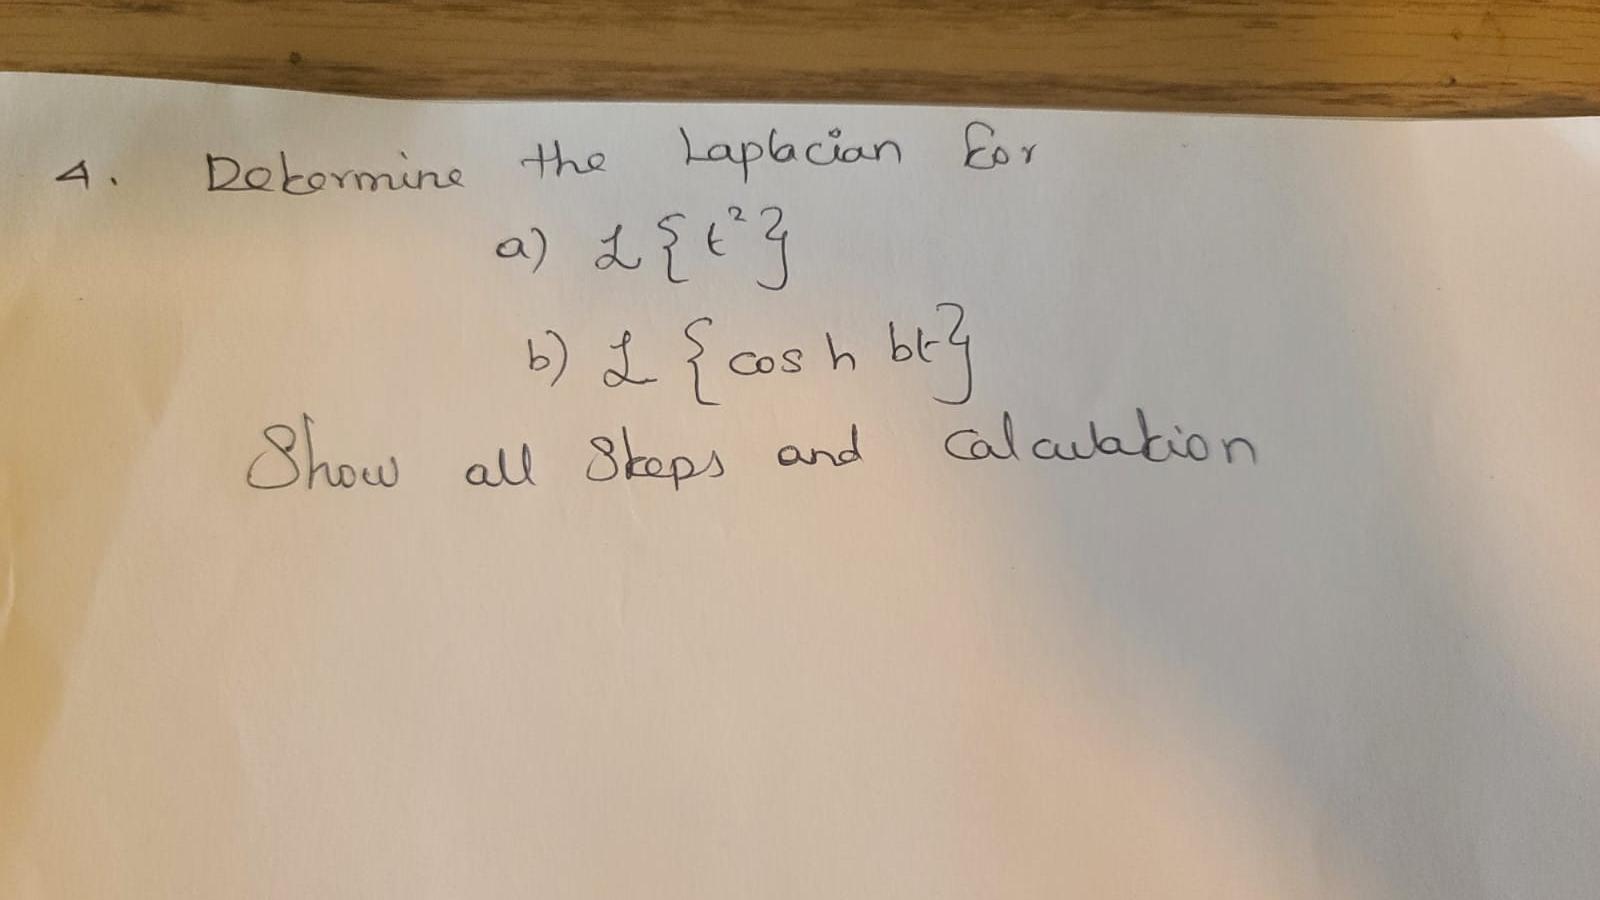 4. Determine the Laplacian for
a) ℒ{t²}
b) ℒ {cos h bt}
Show all steps and calculation